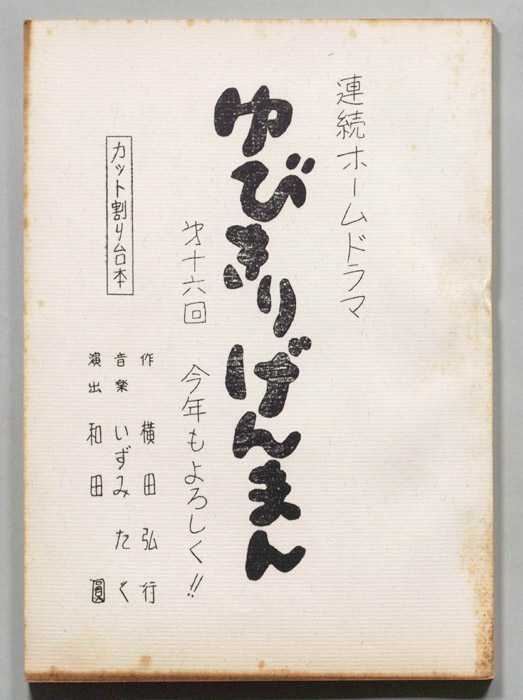 連続ホームドラマ
ゆびきりげんまん
第十六回 今年もよろしく!!
カット割り台本
作 横田弘行
音楽 いずみたく
演出 和田圓